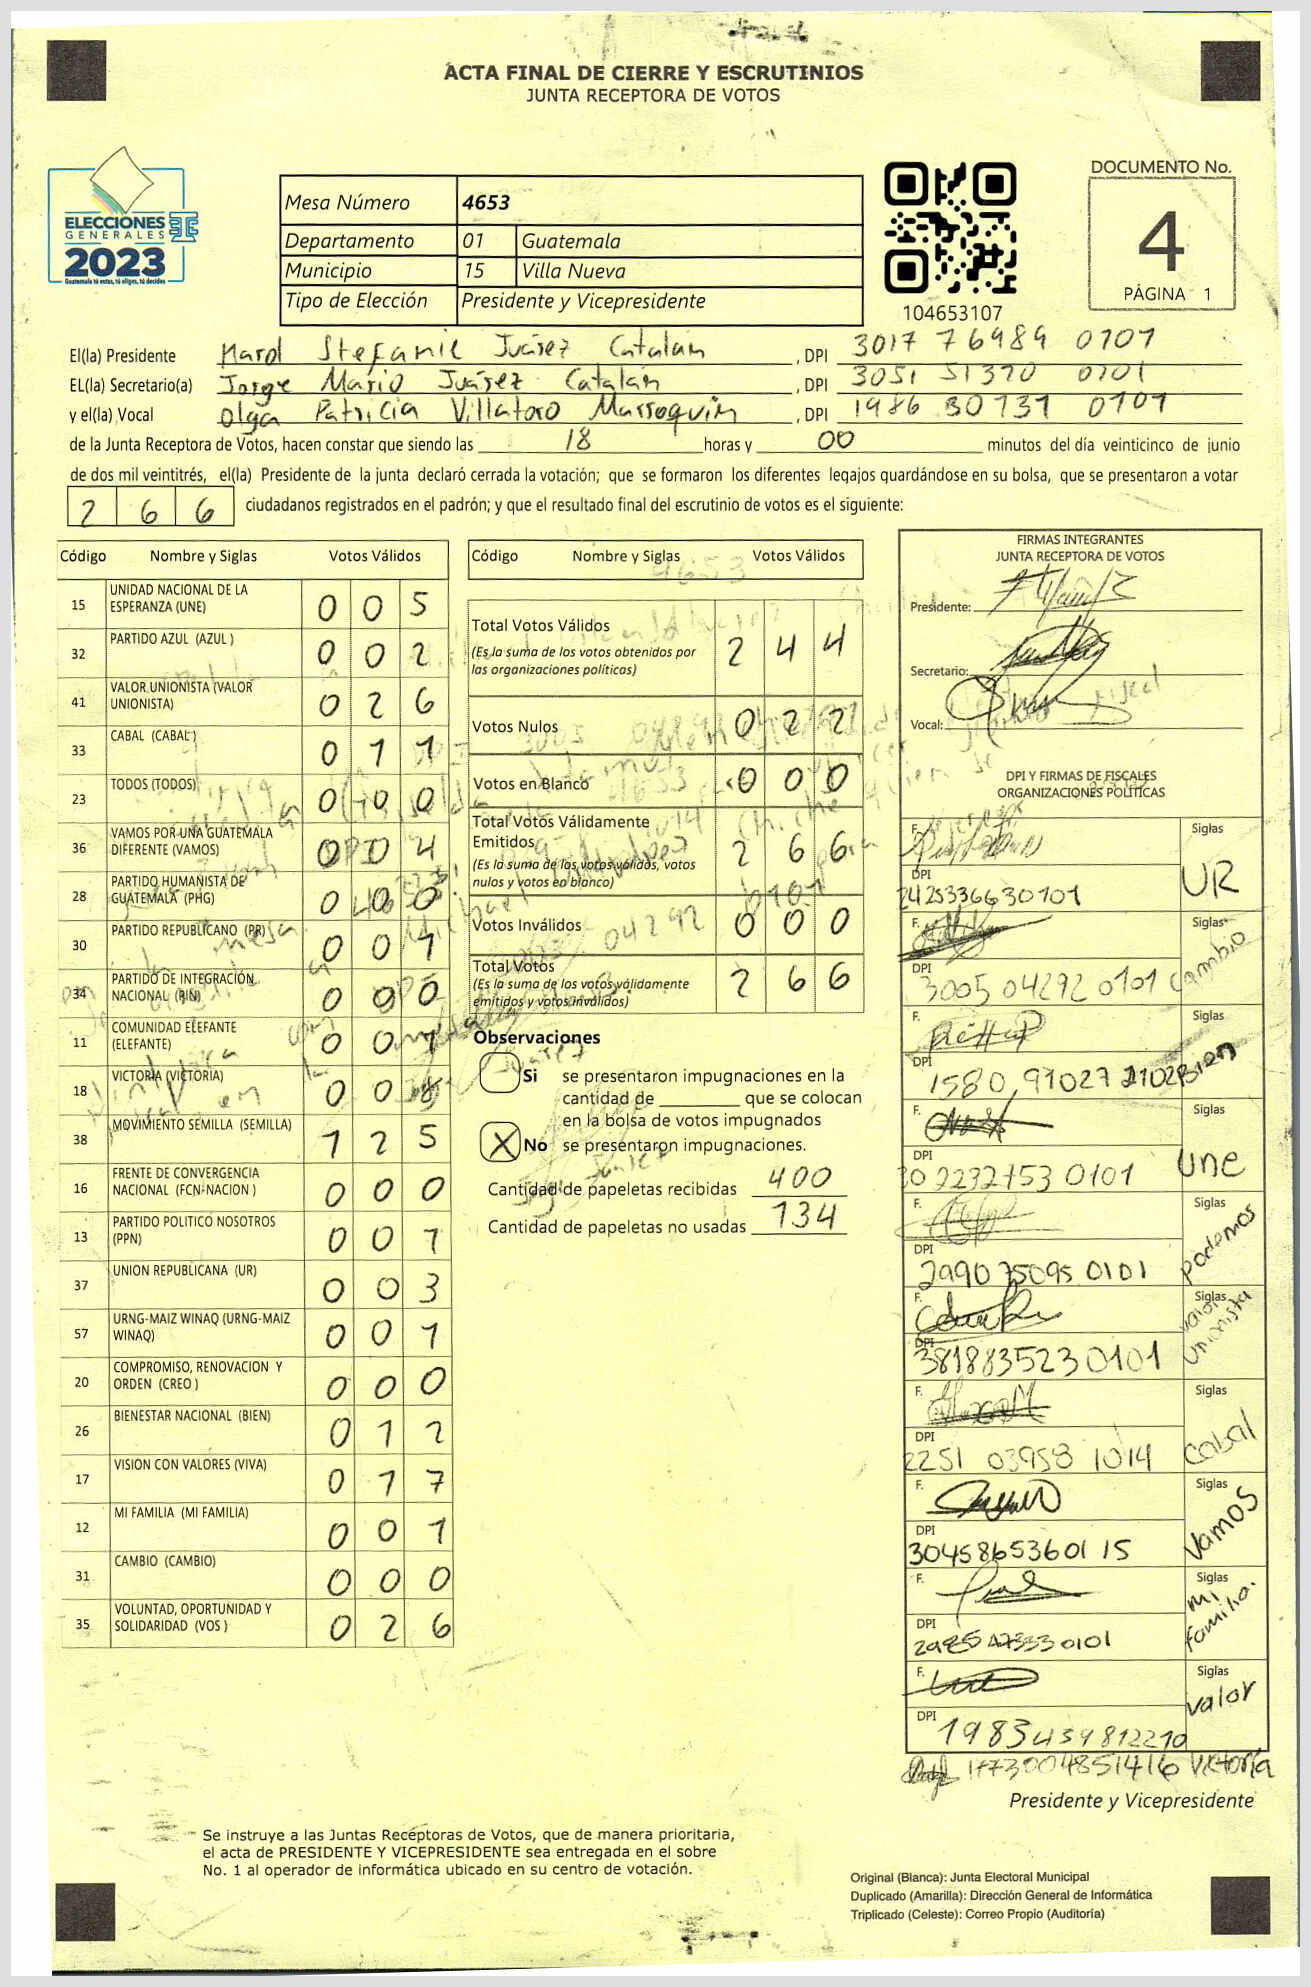 ACTA FINAL DE CIERRE Y ESCRUTINIOS
JUNTA RECEPTORA DE VOTOS
ELECCIONES
GENERALES
2023
Guatemala tú votas, tú eliges, tú decides
Mesa Número 4653
Departamento 01 Guatemala
Municipio 15 Villa Nueva
Tipo de Elección Presidente y Vicepresidente
104653107
DOCUMENTO No.
4
PÁGINA 1
El(la) Presidente Stefanie Juárez Catalán, DPI 3017 76989 0101
EL(la) Secretario(a) Jorge Mario Juárez Catalán, DPI 3051 51370 0101
y el(la) Vocal Olga Patricia Villatoro Marroquin, DPI 1986 30731 0101
de la Junta Receptora de Votos, hacen constar que siendo las 18 horas y 00 minutos del día veinticinco de junio
de dos mil veintitrés, el(la) Presidente de la junta declaró cerrada la votación; que se formaron los diferentes legajos quardándose en su bolsa, que se presentaron a votar
266 ciudadanos registrados en el padrón; y que el resultado final del escrutinio de votos es el siguiente:
Código Nombre y Siglas Votos Válidos
15 UNIDAD NACIONAL DE LA ESPERANZA (UNE) 005
32 PARTIDO AZUL (AZUL ) 002
41 VALOR UNIONISTA (VALOR UNIONISTA) 026
33 CABAL (CABAL ) 011
23 TODOS (TODOS) 000
36 VAMOS POR UNA GUATEMALA DIFERENTE (VAMOS) 004
28 PARTIDO HUMANISTA DE GUATEMALA (PHG) 000
30 PARTIDO REPUBLICANO (PR) 001
34 PARTIDO DE INTEGRACIÓN NACIONAL (PIN) 000
11 COMUNIDAD ELEFANTE (ELEFANTE) 001
18 VICTORIA (VICTORIA) 008
38 MOVIMIENTO SEMILLA (SEMILLA) 125
16 FRENTE DE CONVERGENCIA NACIONAL (FCN-NACION ) 000
13 PARTIDO POLITICO NOSOTROS (PPN) 001
37 UNION REPUBLICANA (UR) 003
57 URNG-MAIZ WINAQ (URNG-MAIZ WINAQ) 001
20 COMPROMISO, RENOVACION Y ORDEN (CREO ) 000
26 BIENESTAR NACIONAL (BIEN) 012
17 VISION CON VALORES (VIVA) 017
12 MI FAMILIA (MI FAMILIA) 001
31 CAMBIO (CAMBIO) 000
35 VOLUNTAD, OPORTUNIDAD Y SOLIDARIDAD (VOS ) 026
Código Nombre y Siglas Votos Válidos
4653
Total Votos Válidos 244
(Es la suma de los votos obtenidos por
las organizaciones políticas)
Votos Nulos 022
Votos en Blanco 000
Total Votos Válidamente
Emitidos 266
(Es la suma de los votos válidos, votos
nulos y votos en blanco)
Votos Inválidos 000
Total Votos 266
(Es la suma de los votos válidamente
emitidos y votos inválidos)
Observaciones
Si se presentaron impugnaciones en la
cantidad de ________ que se colocan
en la bolsa de votos impugnados
X No se presentaron impugnaciones.
Cantidad de papeletas recibidas 400
Cantidad de papeletas no usadas 134
FIRMAS INTEGRANTES
JUNTA RECEPTORA DE VOTOS
Presidente:
Secretario:
Vocal:
DPI Y FIRMAS DE FISCALES
ORGANIZACIONES POLÍTICAS
F. Siglas UR
DPI 2425336630101
F. Siglas Cambio
DPI 3005 04292 0101
F. Siglas Bien
DPI 1580 91027 2102
F. Siglas Une
DPI
F. Siglas podemos
DPI 2990 75095 0101
F. Siglas valor unionista
DPI 3818835230101
F. Siglas Cabal
DPI 2251 03958 1014
F. Siglas Vamos
DPI 3045865360115
F. Siglas mi familia.
DPI
F. Siglas valor
DPI 1983439812210
1773004851416 Victoria
Presidente y Vicepresidente
Se instruye a las Juntas Receptoras de Votos, que de manera prioritaria,
el acta de PRESIDENTE Y VICEPRESIDENTE sea entregada en el sobre
No. 1 al operador de informática ubicado en su centro de votación.
Original (Blanca): Junta Electoral Municipal
Duplicado (Amarilla): Dirección General de Informática
Triplicado (Celeste): Correo Propio (Auditoría)